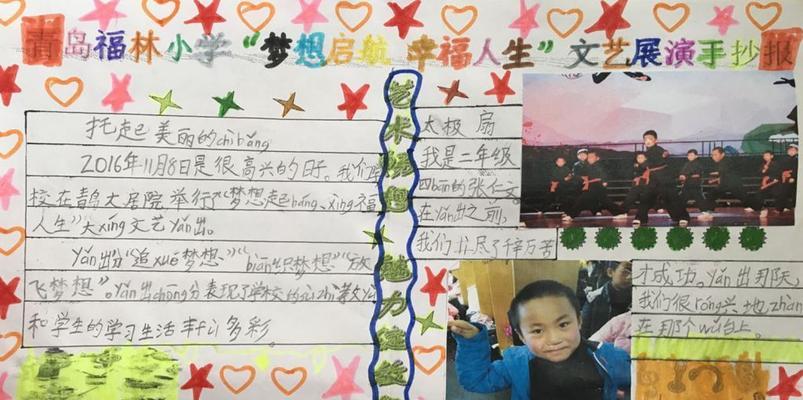 青岛福林小学“梦想启航 幸福人生”文艺展演手抄报
托起美丽的chì bǎng
2016年11月8日是很高兴的日子。我们
校在青岛大居院举行了“梦想起háng、xìng福
人生”大xíng文艺yǎn出。
yǎn出分“追xún梦想”“biān织梦想”“放
飞梦想”。yǎn出chōng分表现了学校的
和学生的学习生活丰fù多彩。
艺术
魅力
太极扇
我是二年级
四bān的张仁文
在yǎn出之前，
我们 尽了千辛万苦
才成功。yǎn出那天，
我们很róng兴地zhàn
在那个wǔ台上。